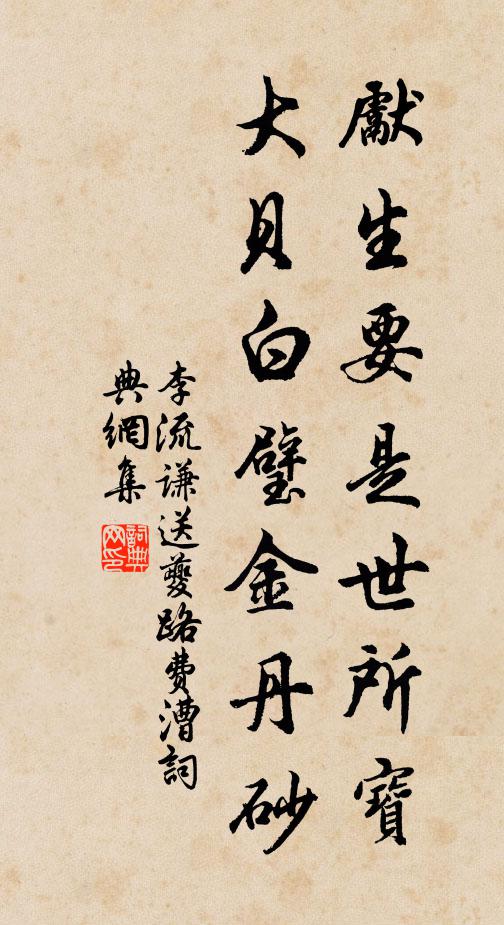 獻生要是世所寶
大貝白璧金丹砂
李流謙送夔路費漕詞
典網集
詞典網印